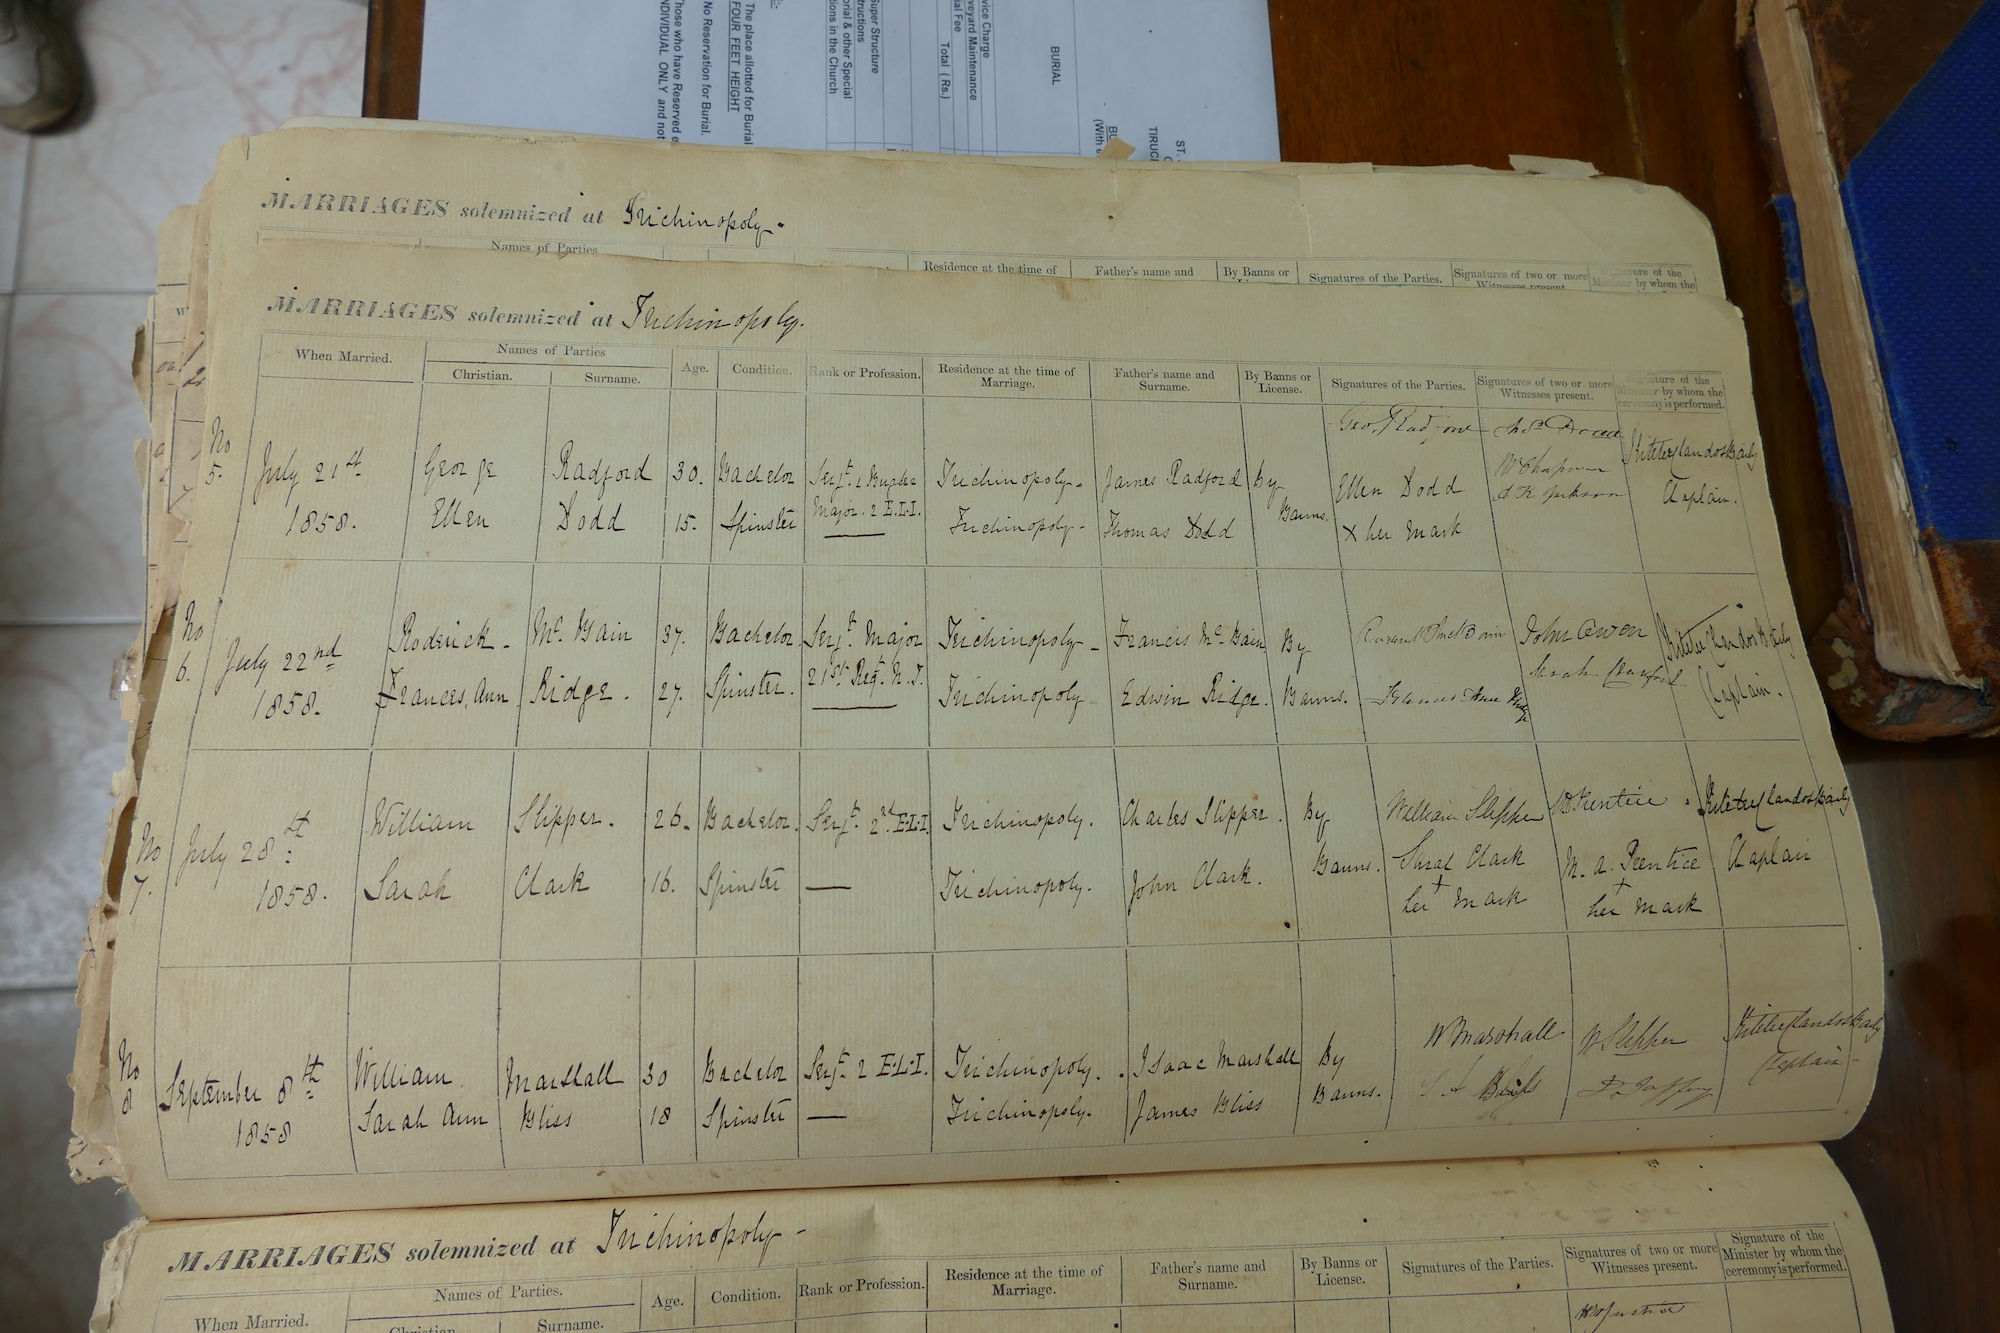 BURIAL
vice Charge
veyard Maintenance
ial Fee
Total ( Rs.)
Super Structure
tructions
orial & other Special
tions in the Church
The place allotted for Burial
FOUR FEET HEIGHT
No Reservation for Burial.
Those who have Reserved
INDIVIDUAL ONLY and not
ST.
TIRUC
(With
MARRIAGES solemnized at Trichinopoly-
Names of Parties
Residence at the time of Father's name and By Banns or Signatures of the Parties. Signatures of two or more Signature of the
Witnesses present. Minister by whom the
MARRIAGES solemnized at Trichinopoly.
When Married. Names of Parties Age. Condition. Rank or Profession. Residence at the time of Marriage. Father's name and Surname. By Banns or License. Signatures of the Parties. Signatures of two or more Witnesses present. Signature of the Minister by whom the ceremony is performed.
Christian. Surname.
No 5. July 21st George Radford 30. Bachelor Serjt. & Bugler Trichinopoly- James Radford By Geo. Radford Thos Dodd
1858. Ellen Dodd 15. Spinster Major. 2 E.L.I. Trichinopoly- Thomas Dodd Banns. Ellen Dodd W Chapman Chaplain.
x her Mark Jackson
No 6. July 22nd Roderick- Mc. Bain 37. Bachelor Serjt. Major Trichinopoly- Francis Mc. Bain By John Owen
1858. Frances, Ann Ridge. 27. Spinster. 21st Regt. N.I. Trichinopoly- Edwin Ridge. Banns. Frances Ann Ridge Sarah Chaplain.
No 7. July 28th William Slipper. 26. Bachelor. Serjt. 2d E.L.I. Trichinopoly. Charles Slipper. By William Slipper Prentice
1858. Sarah Clark 16. Spinster — Trichinopoly. John Clark. Banns. Sarah Clark M. A. Prentice Chaplain
her + Mark her + Mark
No 8 September 8th William Marshall 30 Bachelor Serjt. 2 E.L.I. Trichinopoly. Isaac Marshall By W Marshall W Slipper
1858 Sarah Ann Bliss 18 Spinster — Trichinopoly. James Bliss Banns. S A Bliss Gaffney Chaplain
MARRIAGES solemnized at Trichinopoly-
When Married. Names of Parties. Age. Condition. Rank or Profession. Residence at the time of Marriage. Father's name and Surname. By Banns or License. Signatures of the Parties. Signatures of two or more Witnesses present. Signature of the Minister by whom the ceremony is performed.
Christian. Surname.